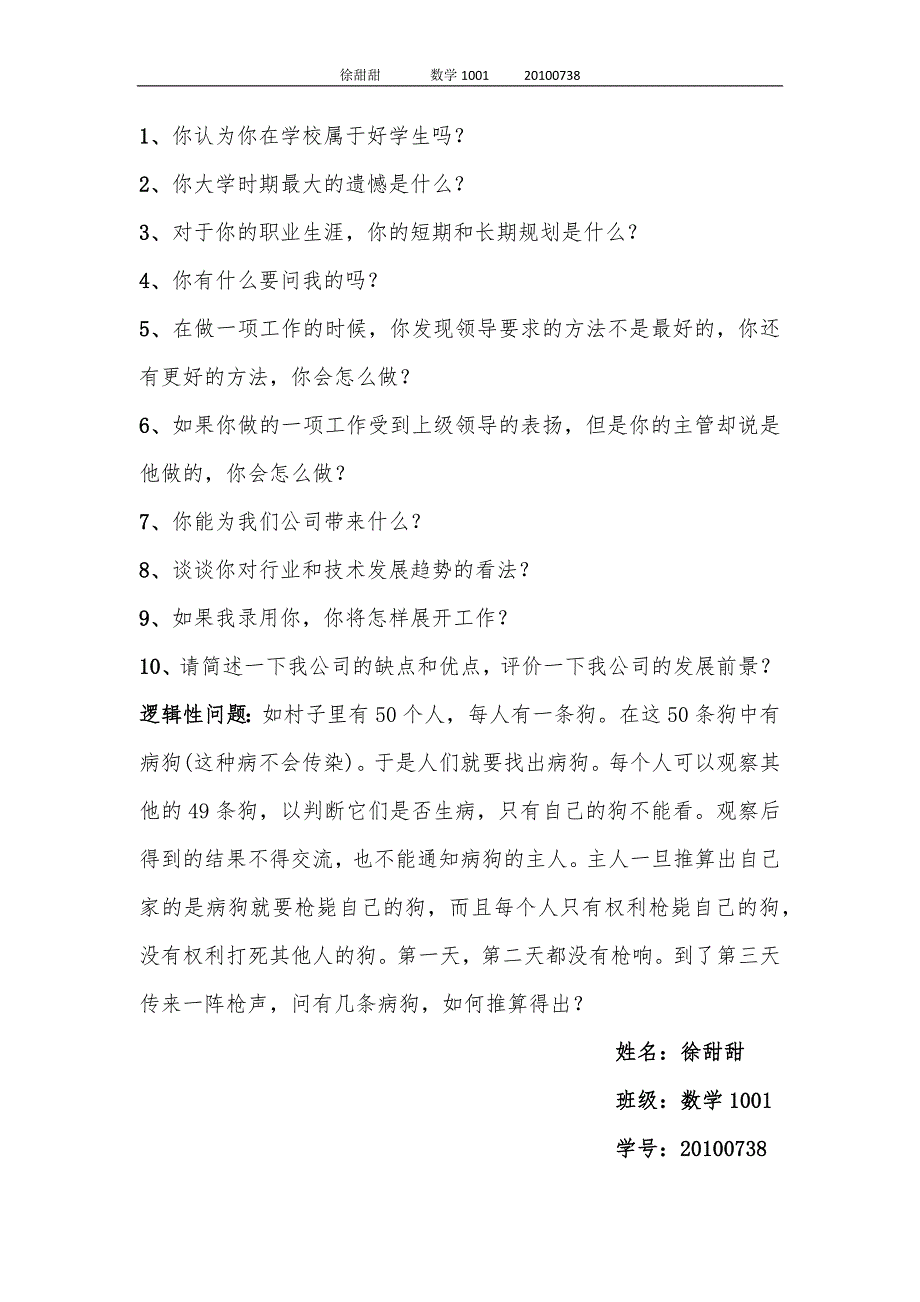 徐甜甜 数学1001 20100738
1、你认为你在学校属于好学生吗？
2、你大学时期最大的遗憾是什么？
3、对于你的职业生涯，你的短期和长期规划是什么？
4、你有什么要问我的吗？
5、在做一项工作的时候，你发现领导要求的方法不是最好的，你还
有更好的方法，你会怎么做？
6、如果你做的一项工作受到上级领导的表扬，但是你的主管却说是
他做的，你会怎么做？
7、你能为我们公司带来什么？
8、谈谈你对行业和技术发展趋势的看法？
9、如果我录用你，你将怎样展开工作？
10、请简述一下我公司的缺点和优点，评价一下我公司的发展前景？
逻辑性问题：如村子里有50个人，每人有一条狗。在这50条狗中有
病狗(这种病不会传染)。于是人们就要找出病狗。每个人可以观察其
他的49条狗，以判断它们是否生病，只有自己的狗不能看。观察后
得到的结果不得交流，也不能通知病狗的主人。主人一旦推算出自己
家的是病狗就要枪毙自己的狗，而且每个人只有权利枪毙自己的狗，
没有权利打死其他人的狗。第一天，第二天都没有枪响。到了第三天
传来一阵枪声，问有几条病狗，如何推算得出？
姓名：徐甜甜
班级：数学1001
学号：20100738